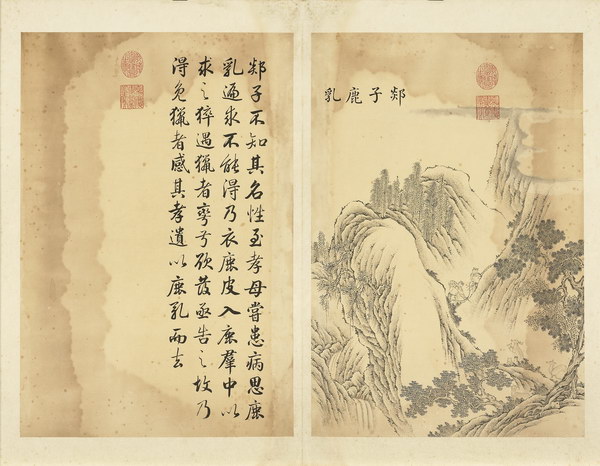 郯子鹿乳
郯子不知其名性至孝母嘗患病思鹿
乳遍求不能得乃衣鹿皮入鹿羣中以
求之猝遇獵者彎弓欲發亟告之故乃
得免獵者感其孝遺以鹿乳而去